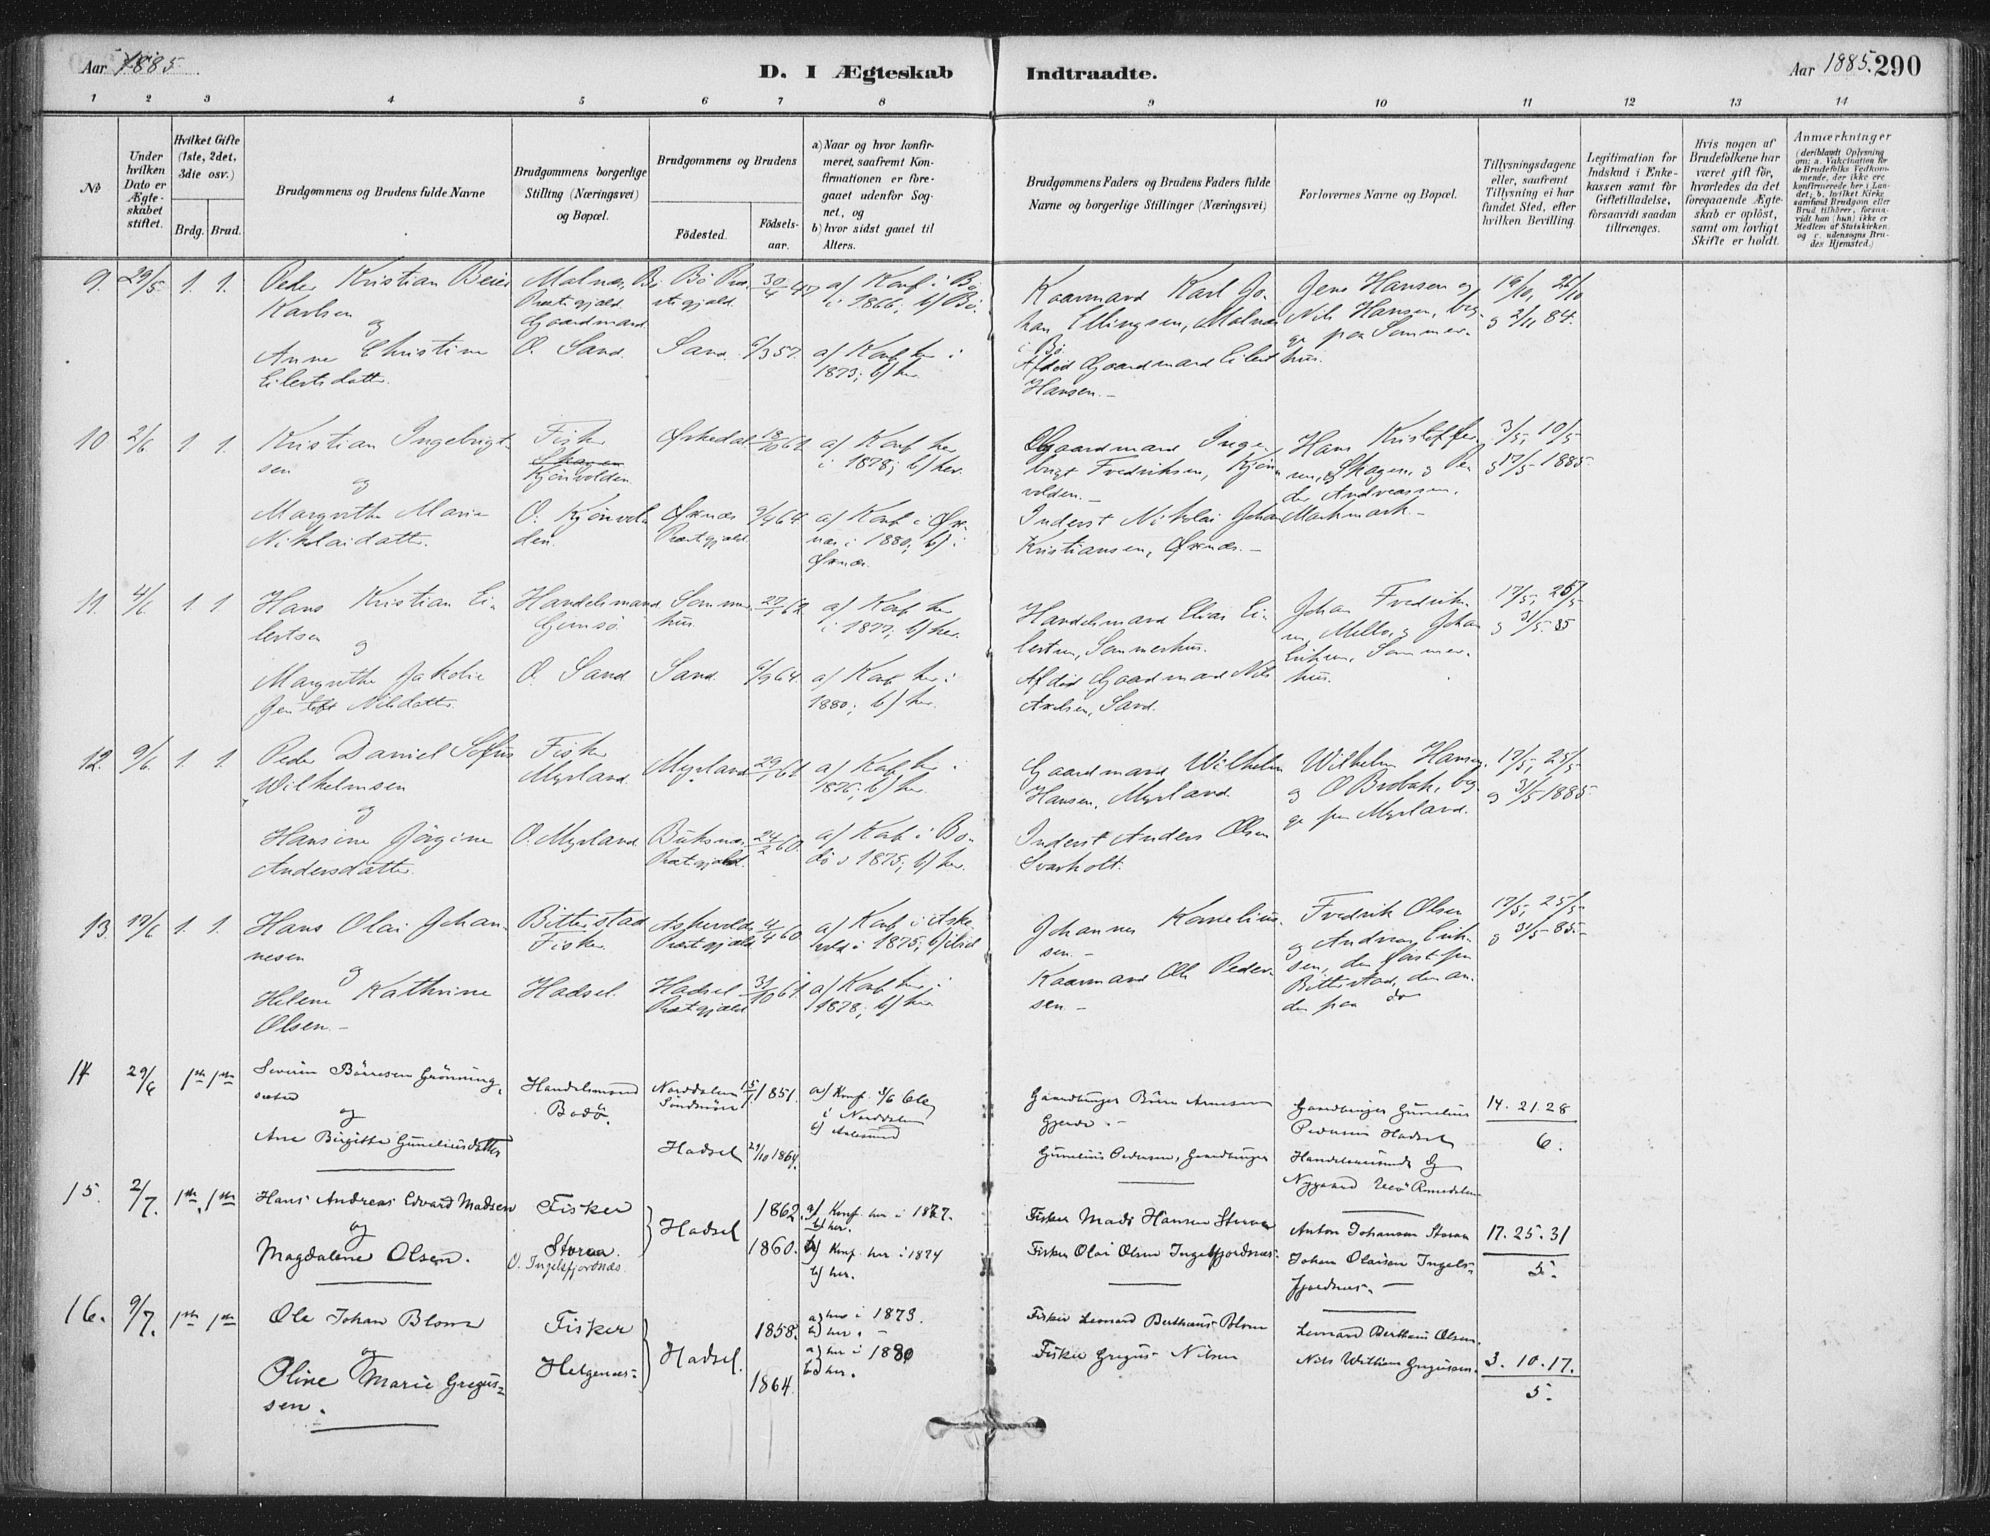 Aar 1885.
D. I Ægteskab
Indtraadte.
Aar 1885. 290
1 2 3 4 5 6 7 8 9 10 11 12 13 14
No
Under hvilken Dato er Ægteskabet stiftet.
Hvilket Gifte (1ste, 2det, 3die osv.)
Brdg. Brud.
Brudgommens og Brudens fulde Navne
Brudgommens borgerlige Stilling (Næringsvei) og Bopæl.
Brudgommens og Brudens
Fødested.
Fødsels-aar.
a) Naar og hvor konfirmeret, saafremt Konfirmationen er foregaaet udenfor Sognet, og
b) hvor sidst gaaet til Alters.
Brudgommens Faders og Brudens Faders fulde Navne og borgerlige Stillinger (Næringsvei)
Forlovernes Navne og Bopæl.
Tillysningsdagene eller, saafremt Tillysning ei har fundet Sted, efter hvilken Bevilling.
Legitimation for Indskud i Enkekassen samt for Giftetilladelse, forsaavidt saadan tiltrænges.
Hvis nogen af Brudefolkene har været gift før, hvorledes da det foregaaende Ægteskab er opløst, samt om lovligt Skifte er holdt.
Anmærkninger
(deriblandt Oplysning om: a. Vakcination for de Brudefolks Vedkommende, der ikke ere konfirmerede her i Landet; b. hvilket Kirkesamfund Brudgom eller Brud tilhører, forsaavidt han (hun) ikke er Medlem af Statskirken, og c. udensogns Brudes Hjemsted.)
9. 29/5 1. 1.
Peder Kristian Beier
Karlsen
og
Anne Christine
Eilertsdatter.
Malnæs, Bø
Præstegjæld
Gaardmand
O. Sand.
Bø Præ-
stegjæld.
Sand.
30/4 47
6/3 57.
a) Konf. i Bø
i 1866; b) Bø.
a) Konf. her i
1873; b) her.
Kaarmand Karl Jo-
han Ellingsen, Malnæs
i Bø
Afdød Gaardmand Eilert
Hansen.-
Jens Hansen og
Nils Hansen, beg-
ge paa Sommer-
hus.
19/10, 26/10
og 2/11 84.
10 2/6 1. 1.
Kristian Ingebrigt-
sen
og
Margrethe Maria
Nikolaidatter.
Fisker
Skagen
Kjønvolden.
O. Kjønvol-
den.
Øxnæs
Præstegjæld.
a) Konf. her
i 1878; b) her.
a) Konf. i Øx-
næs i 1880; b) i
Øxnæs.
Gaardmand Inge-
brigt Fredriksen, Kjøn-
volden.-
Inderst Nikolai Johan
Kristiansen, Øxnæs.-
Hans Kristoffer-
sen, Skagen, og Pe-
der Andreassen,
Markmark.-
3/5, 10/5
og 17/5 1885.
11. 4/6 1 1
Hans Kristian Ei-
lertsen
og
Margrethe Jakobie
Jentoft Nilsdatter.
Handelsmand
Gimsø.
O. Sand
Sommer-
hus.
Sand.
6/9 64.
a) Konf. her
i 1877; b) her.
a) Konf. her i
1880; b) her.
Handelsmand Elias Ei-
lertsen, Sommerhus.
Afdød Gaardmand Nils
Axelsen, Sand.
Johan Fredrik-
sen, Melbo, og Johan
Eriksen, Sommer-
hus.
17/5, 25/5
og 31/5 85
12. 9/6 1. 1.
Peder Daniel Sofus
Wilhelmsen
og
Hansine Jørgine
Andersdatter.
Fisker
Myrland.
O. Myrland
Myrland
Buksnæs
Præstegjæld.
24/2 60.
a) Konf. her i
1876; b) her.
a) Konf. i Bo-
dø i 1875; b) her.
Gaardmand Wilhelm
Hansen, Myrland.
Inderst Anders Olsen
Svarholt.
Wilhelm Hansen
og O Brobak, beg-
ge paa Myrland.
17/5, 25/5
og 31/5 1885.
13. 17/6 1. 1.
Hans Olai Johan-
nesen
og
Helene Kathrine
Olsen.-
Bitterstad
Fisker.
Hadsel.
Askevold
Præstegjæld
Hadsel
Præstegjæld
a) Konf. i Aske-
vold i 1875; b) ibid
a) Konf. her i
1878; b) her
Johannes Kornelius-
sen.-
Kaarmand Ole Peder-
sen.-
Fredrik Olsen
og Andreas Erik-
sen, den første fra
Bitterstad, den an-
den paa do
17/5, 25/5
og 31/5 85.-
14 29/6 1ste 1ste
Severin Børresen Grönning-
sæter
og
Ane Birgitte Guneliusdatter
Handelsmand
Bodø.
Norddalen
Söndmöre
Hadsel
15/1 1851.
29/10 1864.
a) Konf.
i Norddalen
b) Aalesund
Gaardbruger Börre Arnesen
Gjerde.-
Gunelius Pedersen, Gaardbruger
Gaardbruger Gunelius
Pedersen Hadsel
Handelsreisende
Nygaard
14. 21. 28
6.
15. 2/7. 1ste 1ste
Hans Andreas Edvard Madsen
og
Magdalene Olsen.
Fisker
Storaa.
O. Ingelsfjordnæs.
Hadsel
1862.
1860.
a) Konf. her i 1877.
b) her.
a) Konf. her i 1874
b) her.
Fisker Mads Hansen Storaa
Fisker Olai Olsen Ingelsfjordnæs.
Anton Johansen Storaa
Johan Olaisen Ingels-
fjordnæs.-
17. 25. 31
5.
16. 9/7. 1ste 1ste
Ole Johan Blom
og
Oline Marie Gregus-
sen.
Fisker
Helgenæs
Hadsel.
1858.
1864.
a) her i 1873.
b) her.-
a) her i 1880
b) her.
Fisker Leonard Berthæus Blom
Fisker Gregus Nilsen
Leonard Berthæus Olsen.
Nils William Gregussen.
3. 10. 17.
5.